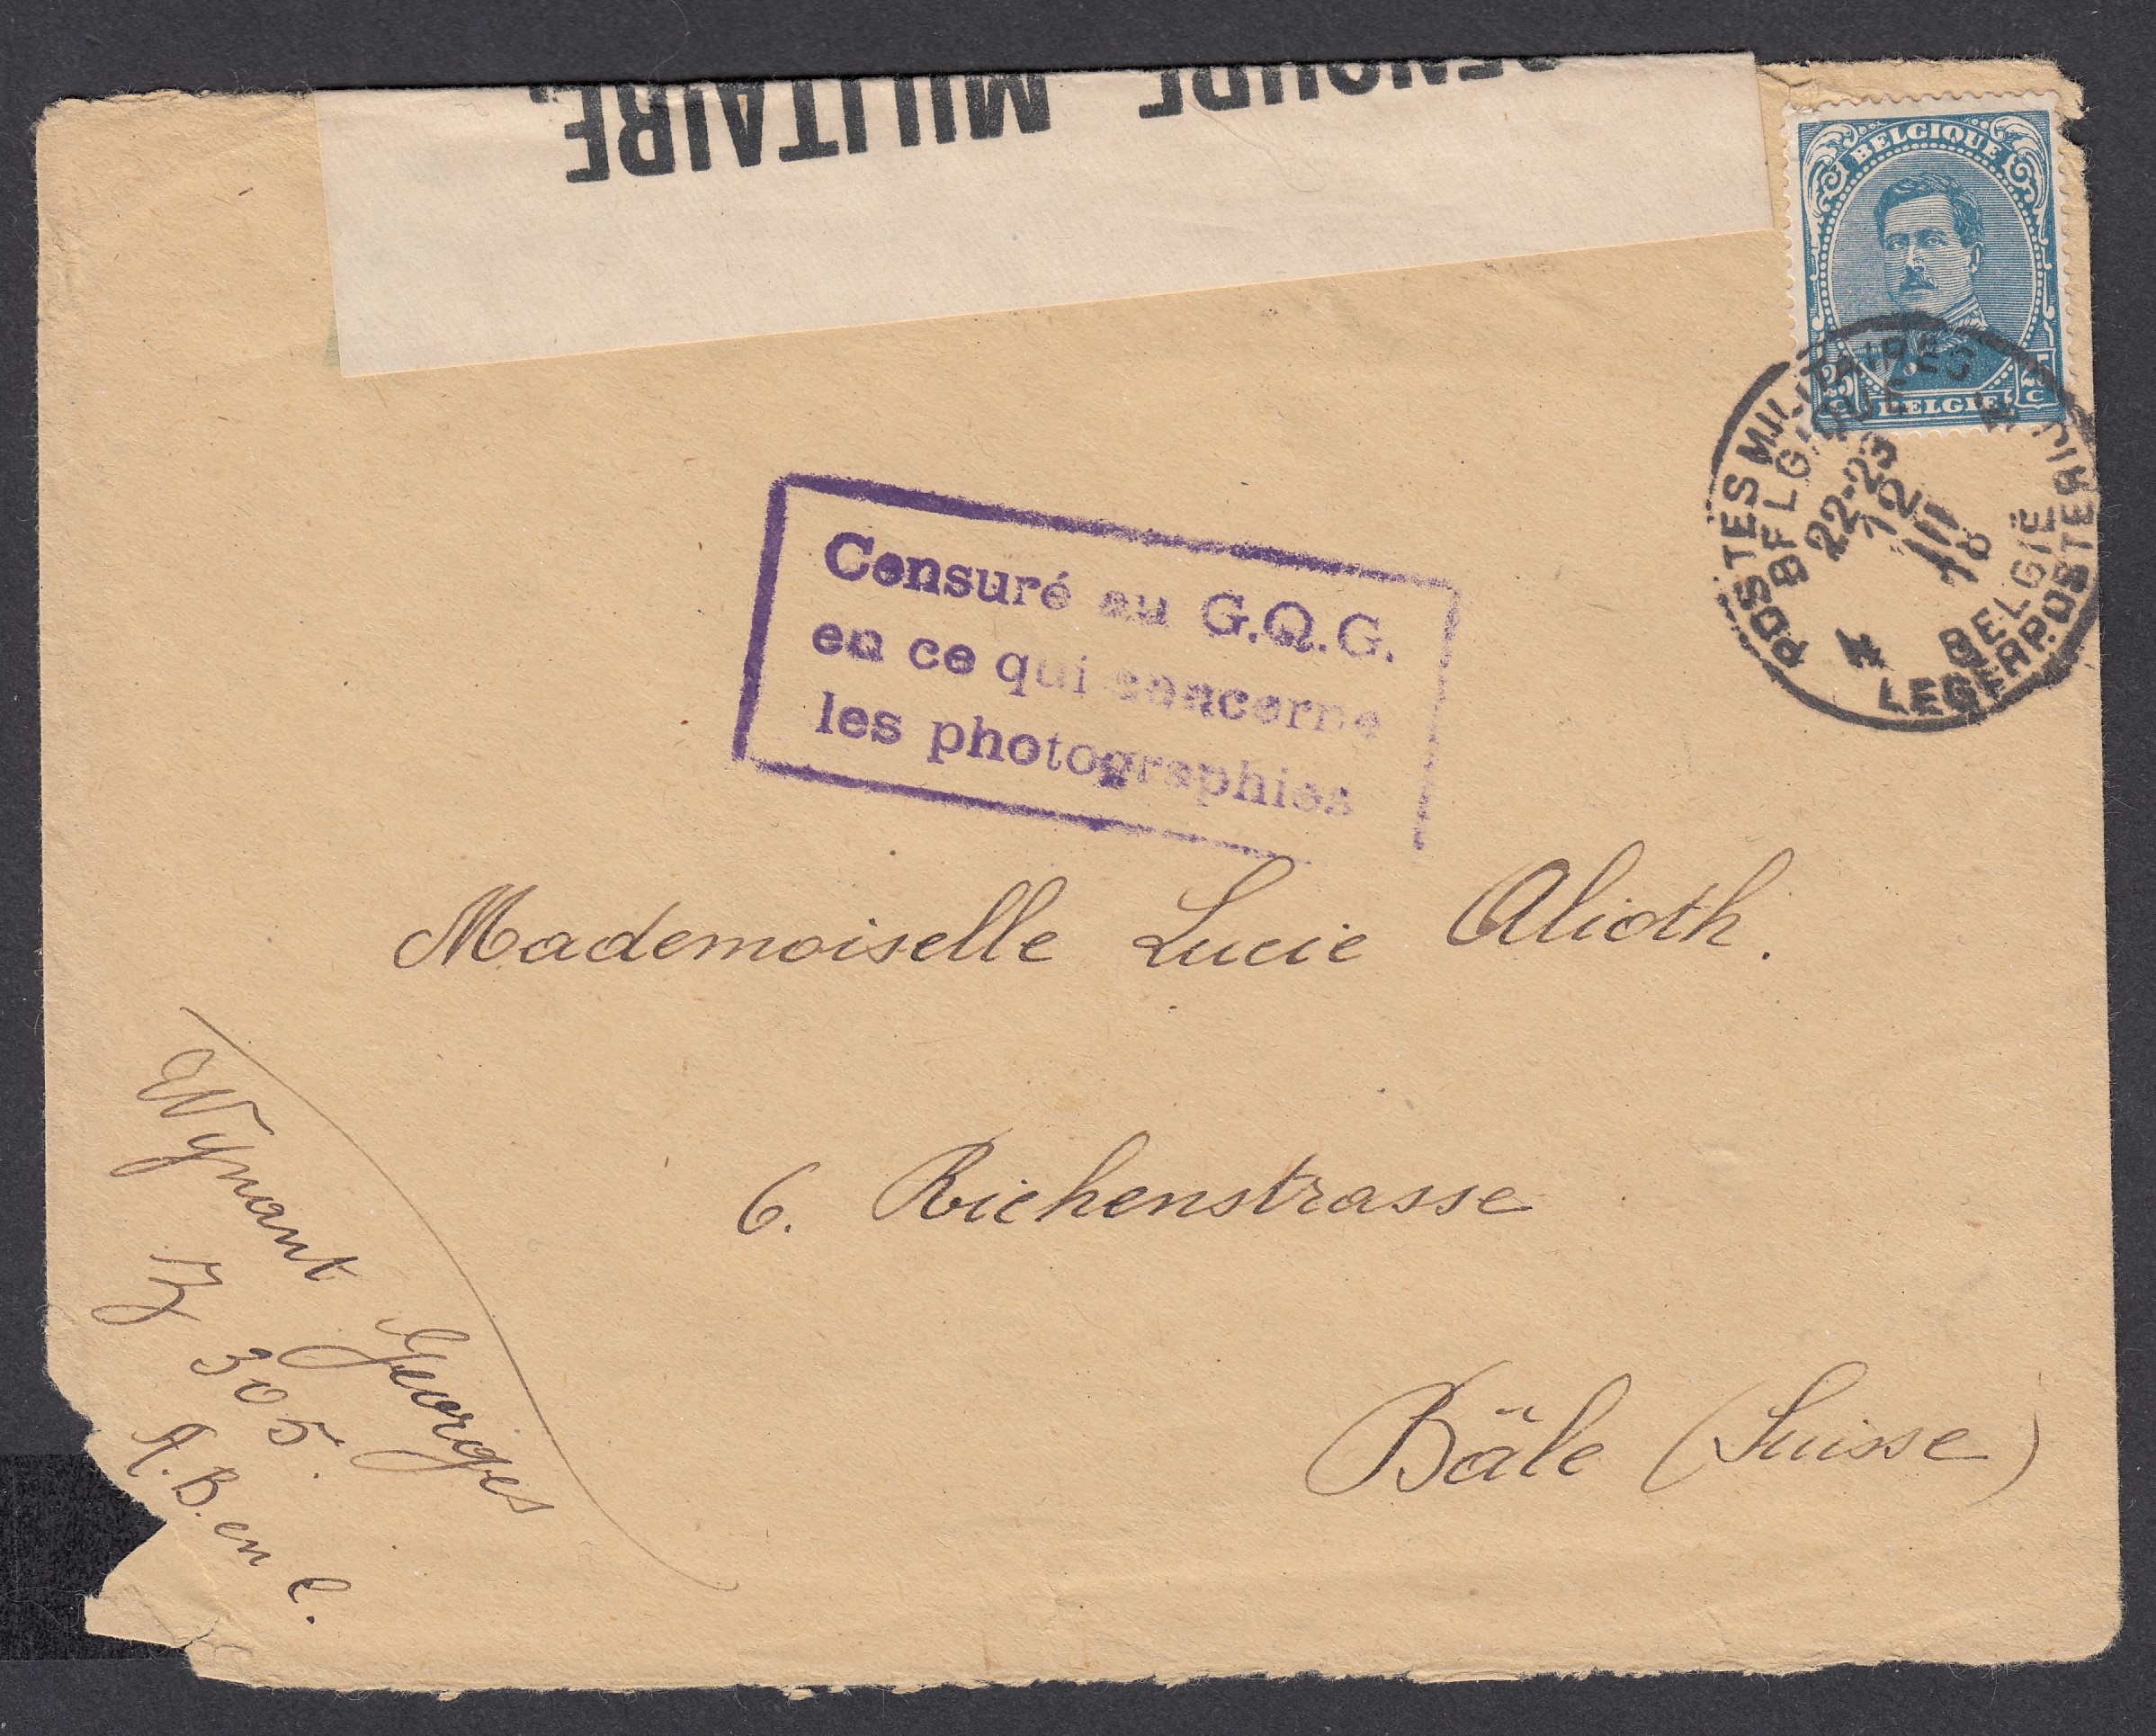 CENSURE MILITAIRE.
BELGIQUE
25 C
25 C
BELGIË
POSTES MILITAIRES
BELGIQUE
22-23
12
III
18
4
4
BELGIË
LEGERPOSTERIJ
Censuré au G.Q.G.
en ce qui concerne
les photographies
Mademoiselle Lucie Alioth.
6. Riehenstrasse
Bâle (Suisse)
Wynant Georges
Z 305.
A.B. en C.